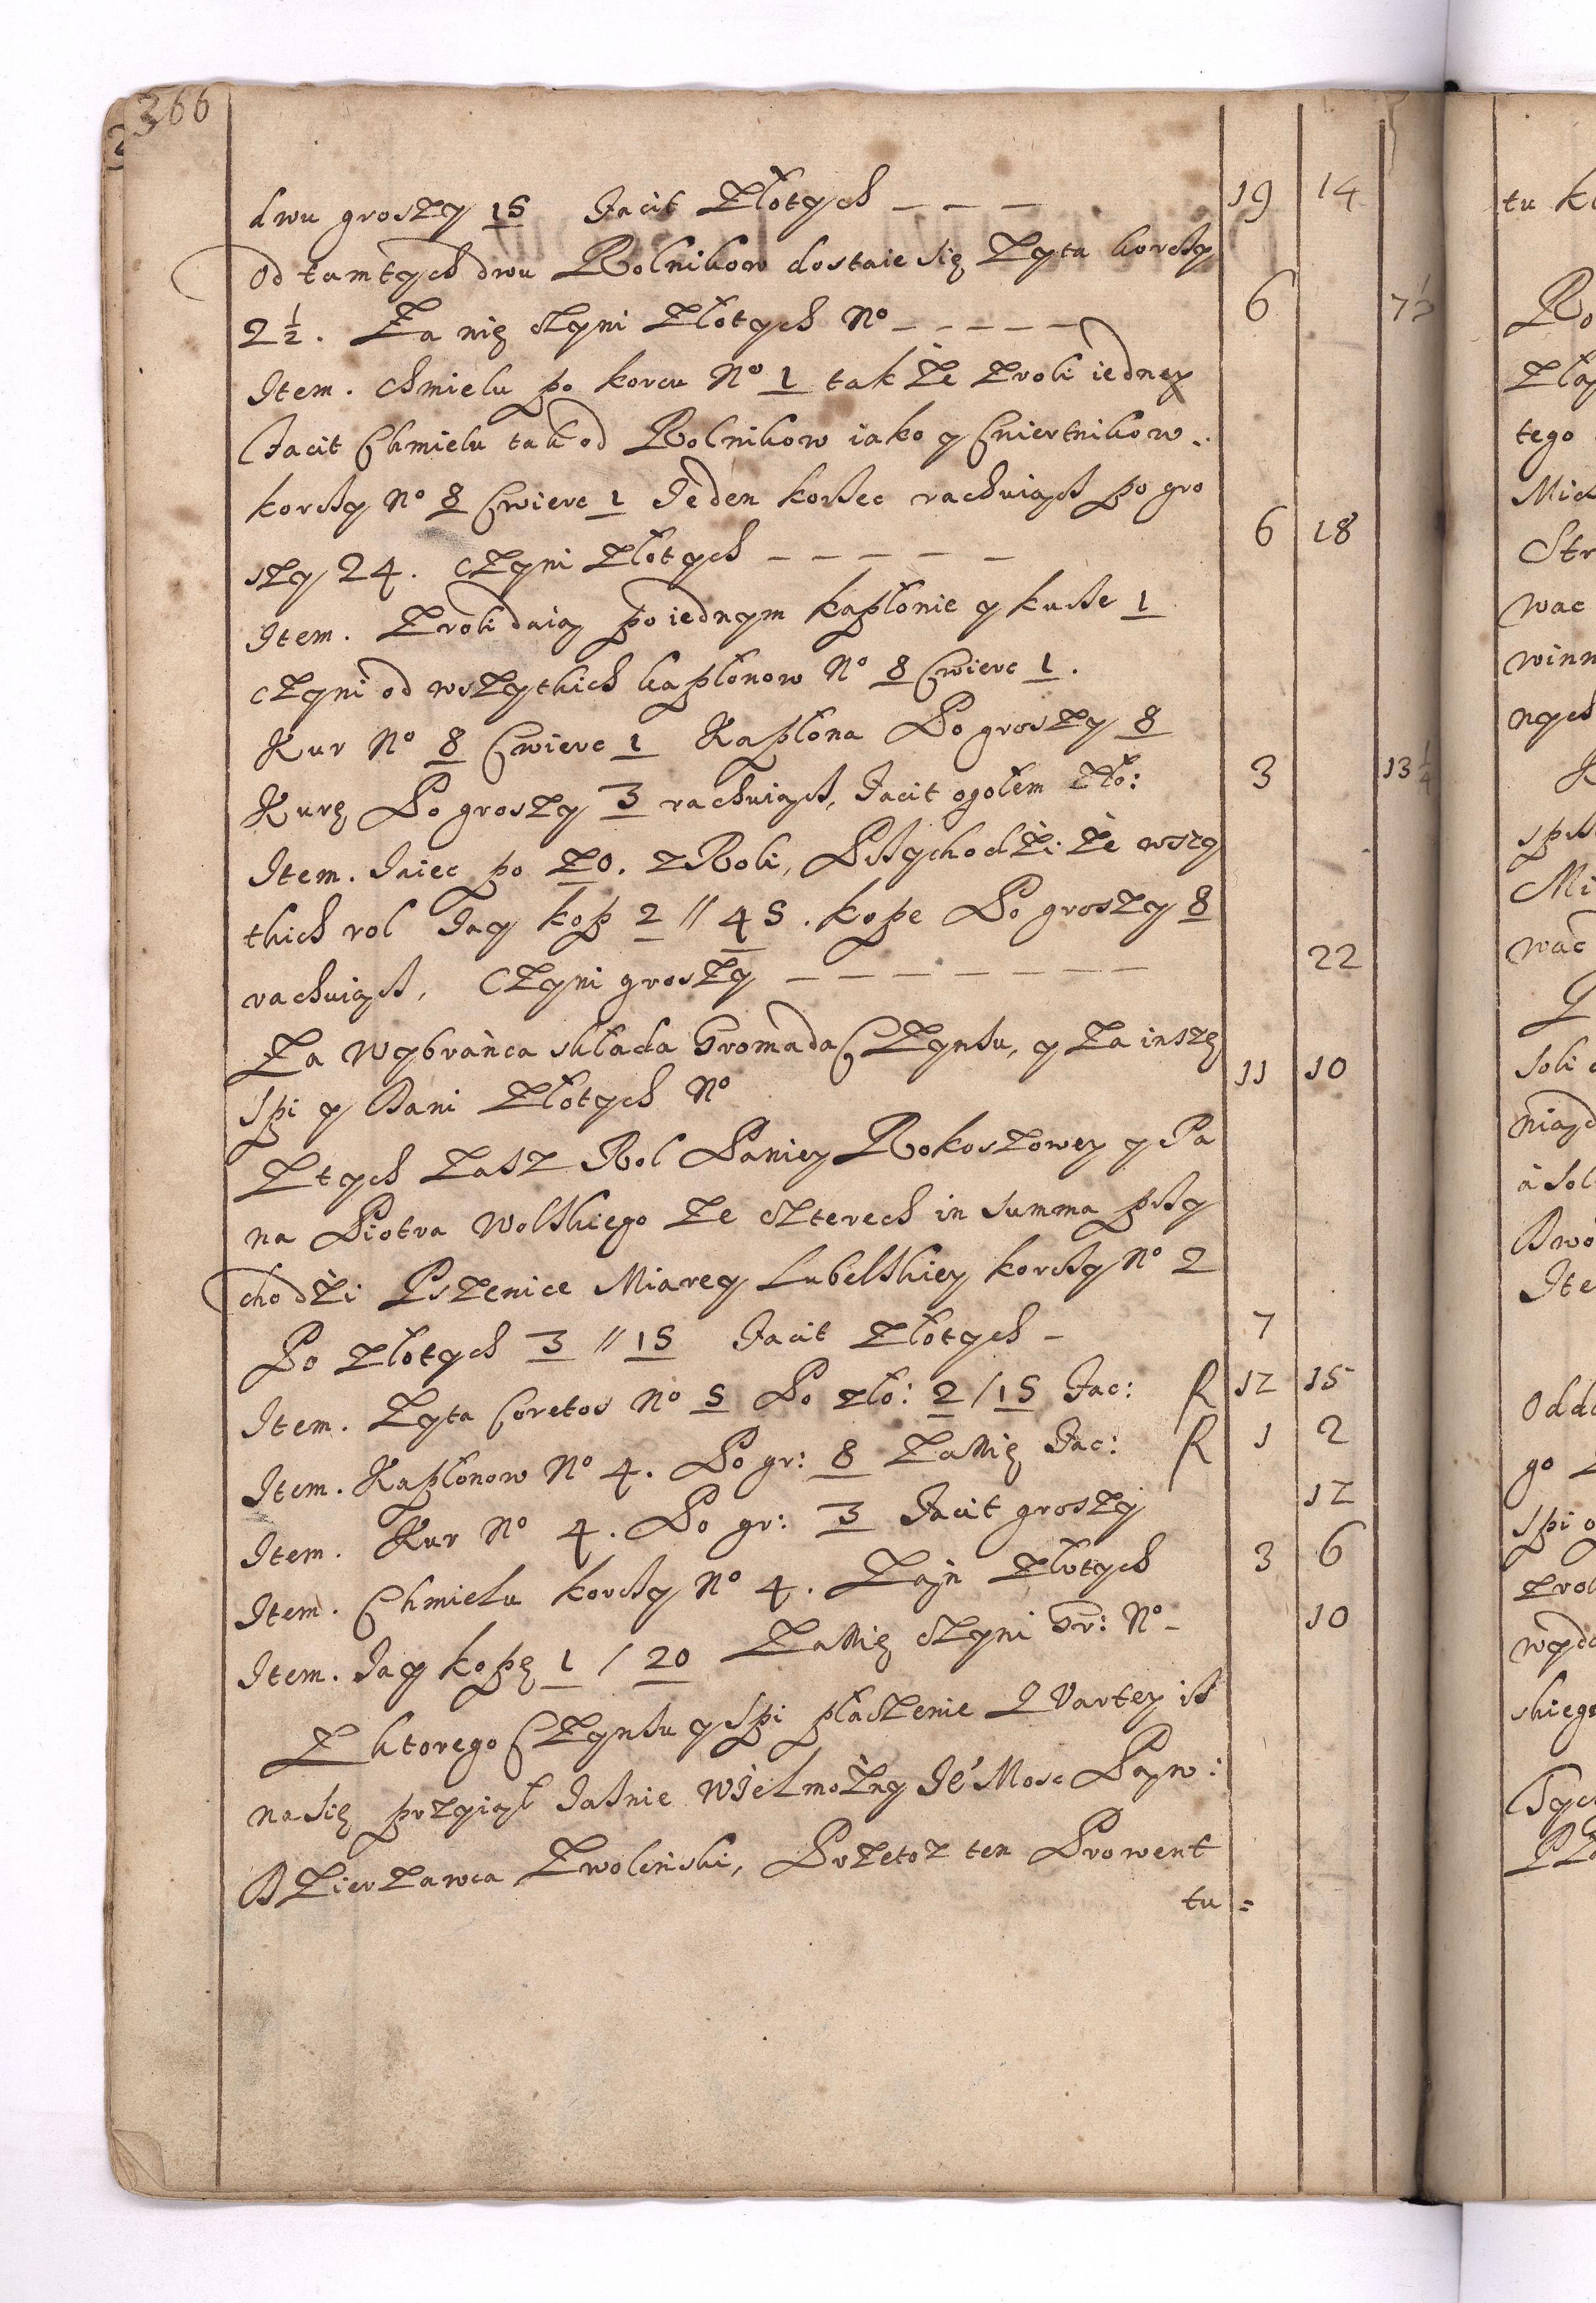 366
dwu groszy 15 Facit Złotych — — — 19 14
Od tamtych dwu Rolnikow dostaie się Zyta korczy
2 1/2. Za nię czyni Złotych No — — — — — 6 7 1/2
Item. Chmielu po korcu No 1 tak że z roli iedney
Facit Chmielu tak od Rolnikow iako y Cwiertnikow.
korczy No 8 Cwierc 1 Jeden korzec rachuiącz po gro
szy 24. czyni Złotych — — — — — 6 18
Item. Z roli daią po iednym kapłonie y kurze 1
czyni od wszytkich kapłonow No 8 Cwierc 1.
Kur No 8 Cwierc 1 Kapłona Po groszy 8
Kurę Po groszy 3 rachuiącz, Facit ogołem Zło: 3 13 1/4
Item. Jaiec po 20. z Roli, Przychodzi że wszy
tkich rol Jay kop 2 // 45. kope Po groszy 8
rachuiącz, Czyni groszy — — — — — — — 22
Za Wybrańca składa Gromada Czynszu, y Za inszę
spi y Dani Złotych No 11 10
Z tych Zasz Rol Paniey Rokoszowey y Pa
na Piotra Wolskiego Ze czterech in Summa przy
chodźi Pszenice Miarey Lubelskiey korczy No 2
Po Złotych 3 // 15 Facit Złotych — 7
Item. Zyta Coretos No 5 Po zło: 2 / 15 Fac: R 12 15
Item. Kapłonow No 4. Po gr: 8 Za Nię Fac: R 1 2
Item. Kur No 4. Po gr: 3 Facit groszy 12
Item. Chmielu korczy No 4. Zań Złotych 3 6
Item. Jay kopę 1 / 20 Za Nię czyni Gr: No — 10
Z ktorego Czynszu y Spi płaczenie Quartey isz
na się przyiął Jaśnie Wielmożny Je Mosc Pan:
Dzierzawca Zwoleński, Przetoz ten Prowent
tu =